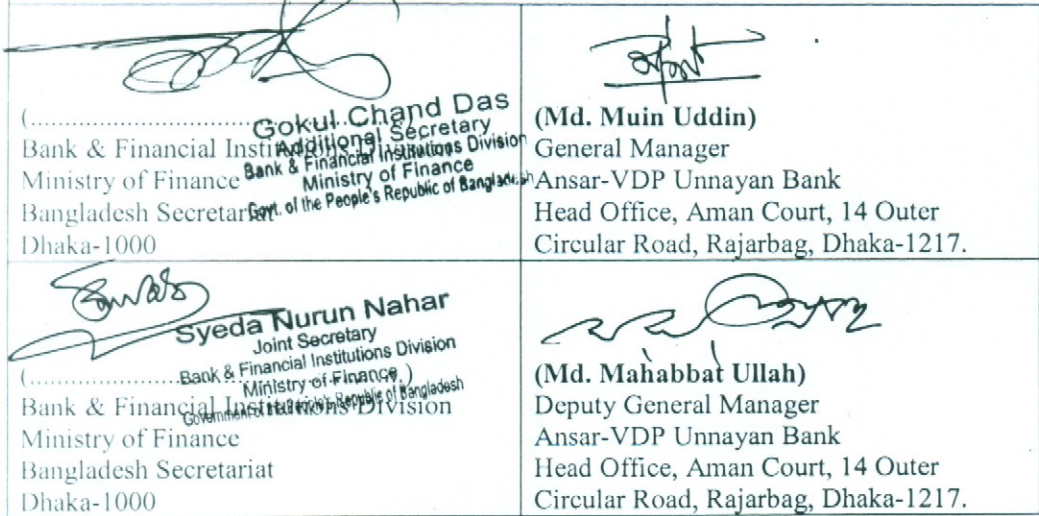 (..............................)
Gokul Chand Das
Additional Secretary
Bank & Financial Institutions Division
Ministry of Finance
Govt. of the People's Republic of Bangladesh
Bank & Financial Institutions Division
Ministry of Finance
Bangladesh Secretariat
Dhaka-1000
(Md. Muin Uddin)
General Manager
Ansar-VDP Unnayan Bank
Head Office, Aman Court, 14 Outer
Circular Road, Rajarbag, Dhaka-1217.
Syeda Nurun Nahar
Joint Secretary
Bank & Financial Institutions Division
Ministry of Finance
Government of the People's Republic of Bangladesh
(..............................)
Bank & Financial Institutions Division
Ministry of Finance
Bangladesh Secretariat
Dhaka-1000
(Md. Mahabbat Ullah)
Deputy General Manager
Ansar-VDP Unnayan Bank
Head Office, Aman Court, 14 Outer
Circular Road, Rajarbag, Dhaka-1217.